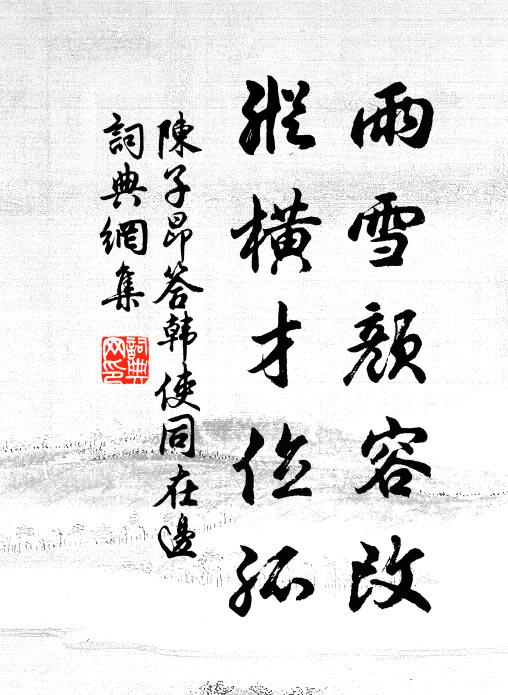 雨雪顏容改
縱橫才位孤
陳子昂答韓使同在邊
詞典網集
詞典網印